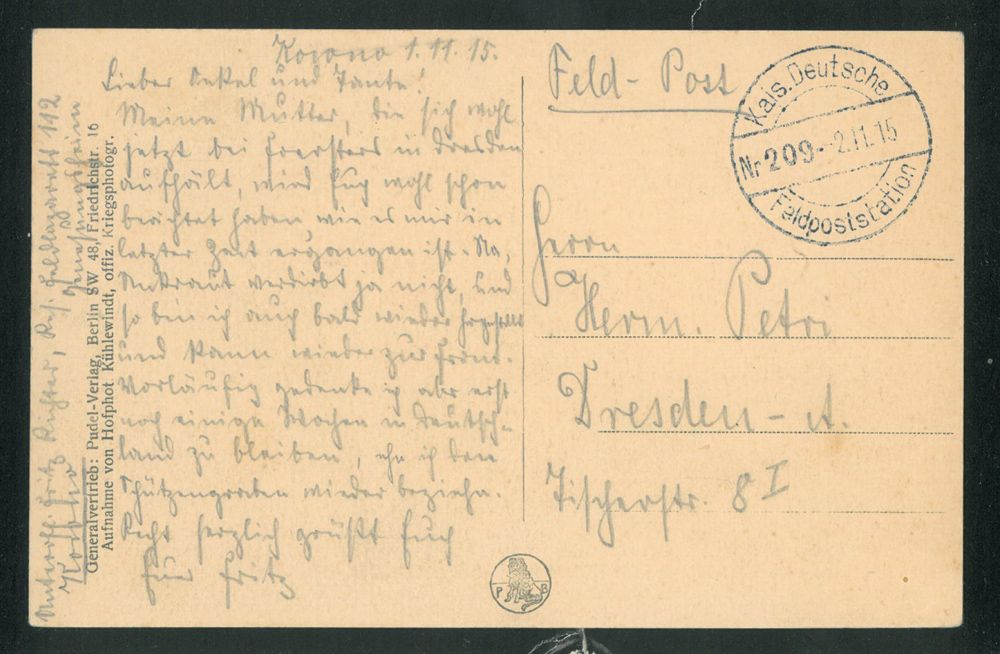 Kowno 1.11.15.
Lieber Onkel und Tante!
Meine Mutter, die sich wohl
jetzt bei Foersters in Dresden
aufhält, wird Euch wohl schon
berichtet haben wie es mir in
letzter Zeit ergangen ist. Na,
Unkraut verdirbt ja nicht, und
so bin ich auch bald wieder hergestellt
und kann wieder zur Front.
Vorläufig gedenke ich aber erst
noch einige Wochen in Deutsch-
land zu bleiben, ehe ich den
Schützengraben wieder beziehe.
Recht herzlich grüßt Euch
Euer Fritz
Unteroff. Fritz Richter, Res. Feldlazarett 112
Genesungsheim
Kowno
Generalvertrieb: Pudel-Verlag, Berlin SW 48, Friedrichstr. 16
Aufnahme von Hofphot Kühlewindt, offiz. Kriegsphotogr.
P B
Feld-Post
Kais. Deutsche
Nr 209 - 2.11.15
Feldpoststation
Herrn
Herm. Petri
Dresden-A.
Tischerstr. 8 I